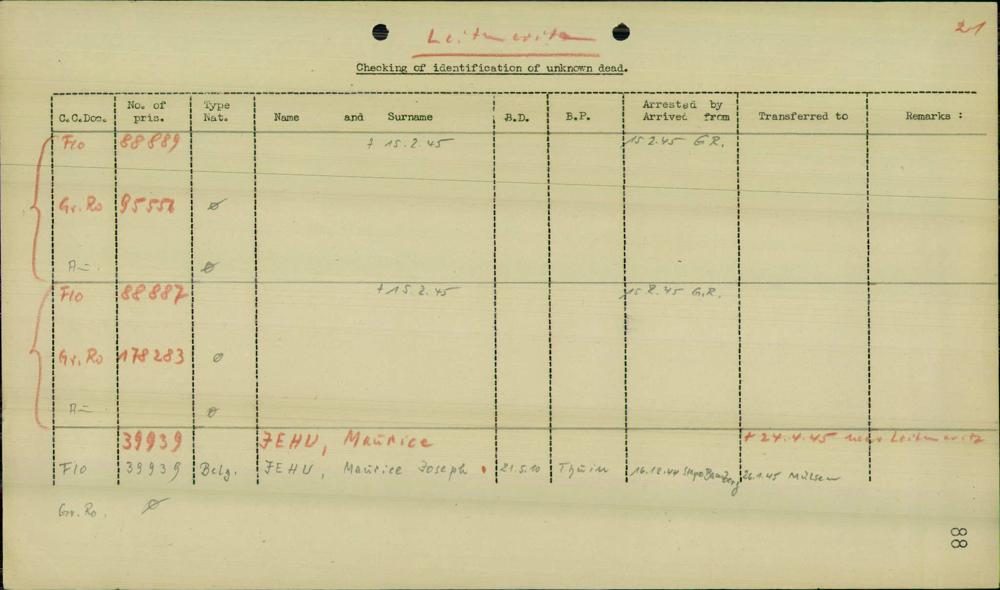 Leitmeritz
21
Checking of identification of unknown dead.
C.C.Doc. No. of pris. Type Nat. Name and Surname B.D. B.P. Arrested by Arrived from Transferred to Remarks :
Flo 88889 + 15.2.45 15 2.45 G R.
Gr. Ro 95556 ø
ø
Flo 88887 + 15.2.45 15 2.45 G.R.
Gr. Ro 178283 ø
ø
39939 JEHU, Maurice + 24.4.45 near Leitmeritz
Flo 39939 Belg. JEHU, Maurice Joseph 21.5.10 Thuin 16.12.44 26.1.45 Mülsen
Gr. Ro. ø
88